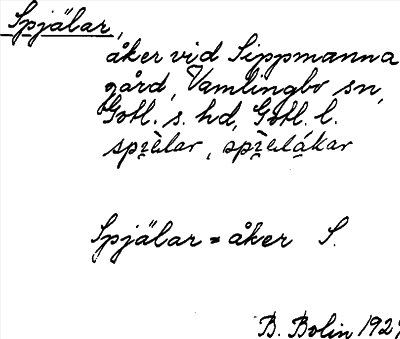 Spjälar,
åker vid Sippmanna
gård, Vamlingbo sn,
Gotl. s. hd, Gotl. l.
spi̯èlar, spi̯èlákar
Spjälar = åker S.
B. Bolin 1927